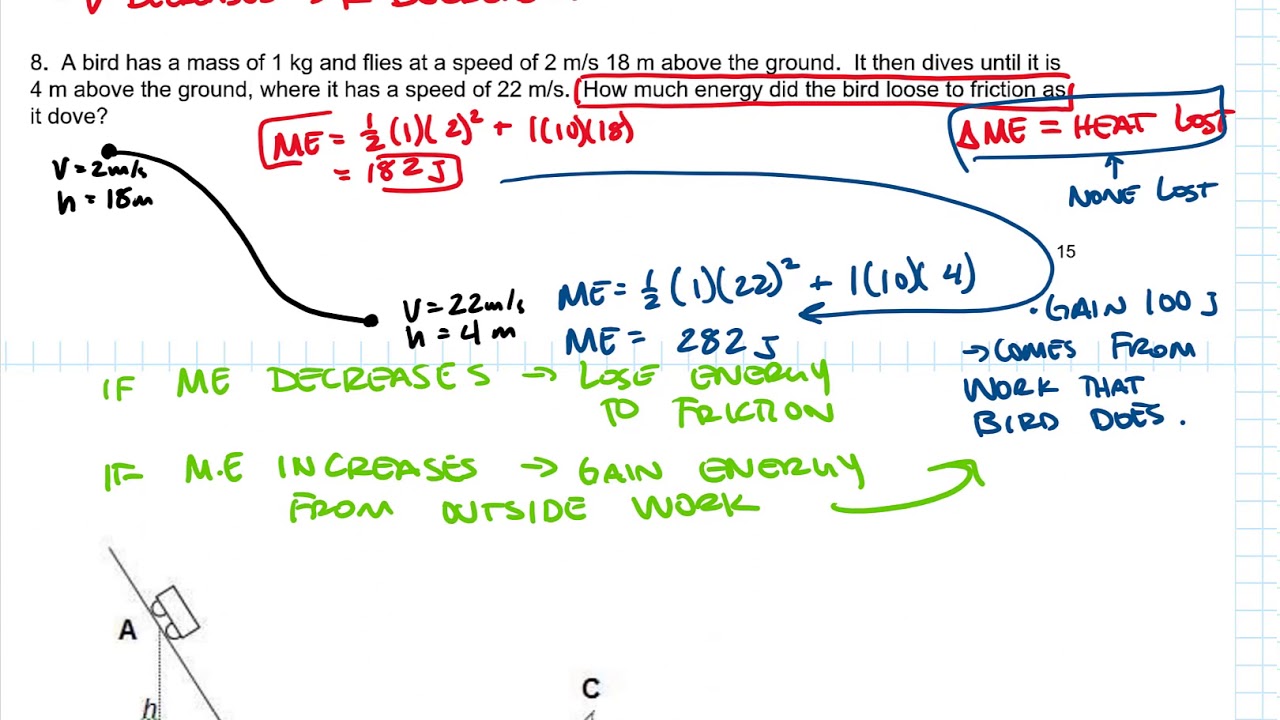 V DECREASES → K DECREASE
8. A bird has a mass of 1 kg and flies at a speed of 2 m/s 18 m above the ground. It then dives until it is
4 m above the ground, where it has a speed of 22 m/s. How much energy did the bird loose to friction as
it dove?
ME = ½ (1)(2)² + 1(10)(18)
= 182 J
ΔME = HEAT LOST
↑
NONE LOST
V = 2m/s
h = 18m
15
V = 22m/s
h = 4 m
ME = ½ (1)(22)² + 1(10)(4)
ME = 282 J
. GAIN 100 J
→ COMES FROM
WORK THAT
BIRD DOES.
IF ME DECREASES → LOSE ENERGY
TO FRICTION
IF M.E INCREASES → GAIN ENERGY
FROM OUTSIDE WORK
A
h
C